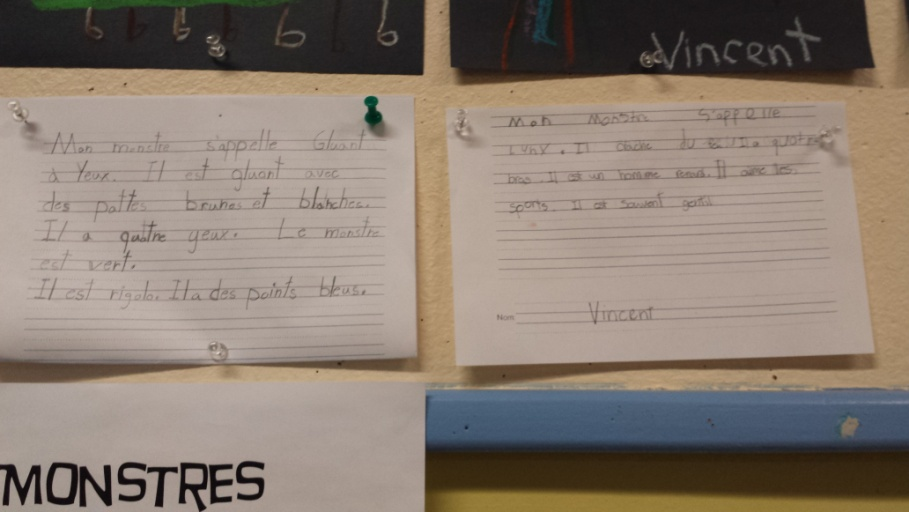 Vincent
Mon monstre s'appelle Gluant
à Yeux. Il est gluant avec
des pattes brunes et blanches.
Il a quatre yeux. Le monstre
est vert.
Il est rigolo. Il a des points bleus.
Mon Monstr s'appelle
Lynx. Il crache du Il a quatre
bras. Il est un homme renard. Il aime les
sports. Il est souvent gentil
Nom: Vincent
MONSTRES